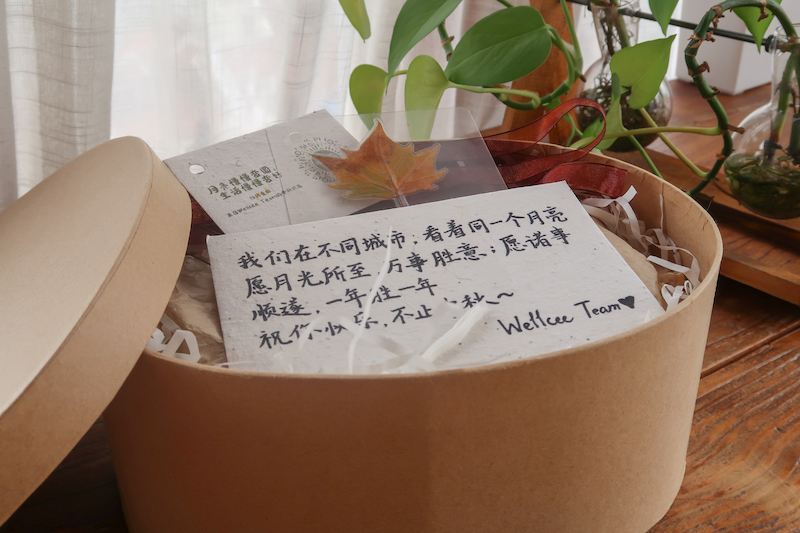 月亮慢慢变圆
生活慢慢变好
我们在不同城市，看着同一个月亮
愿月光所至 万事胜意；愿诸事
顺遂，一年胜一年
祝你快乐，不止 秋～
Wellcee Team♥